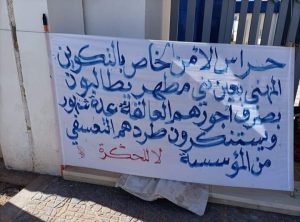 حراس الامن الخاص بالتكوين
المهني بعين بني مطهر يطالبون
بصرف اجورهم العالقة لعدة شهور
ويستنكرون طردهم التعسفي
من المؤسسة
لا للحكرة